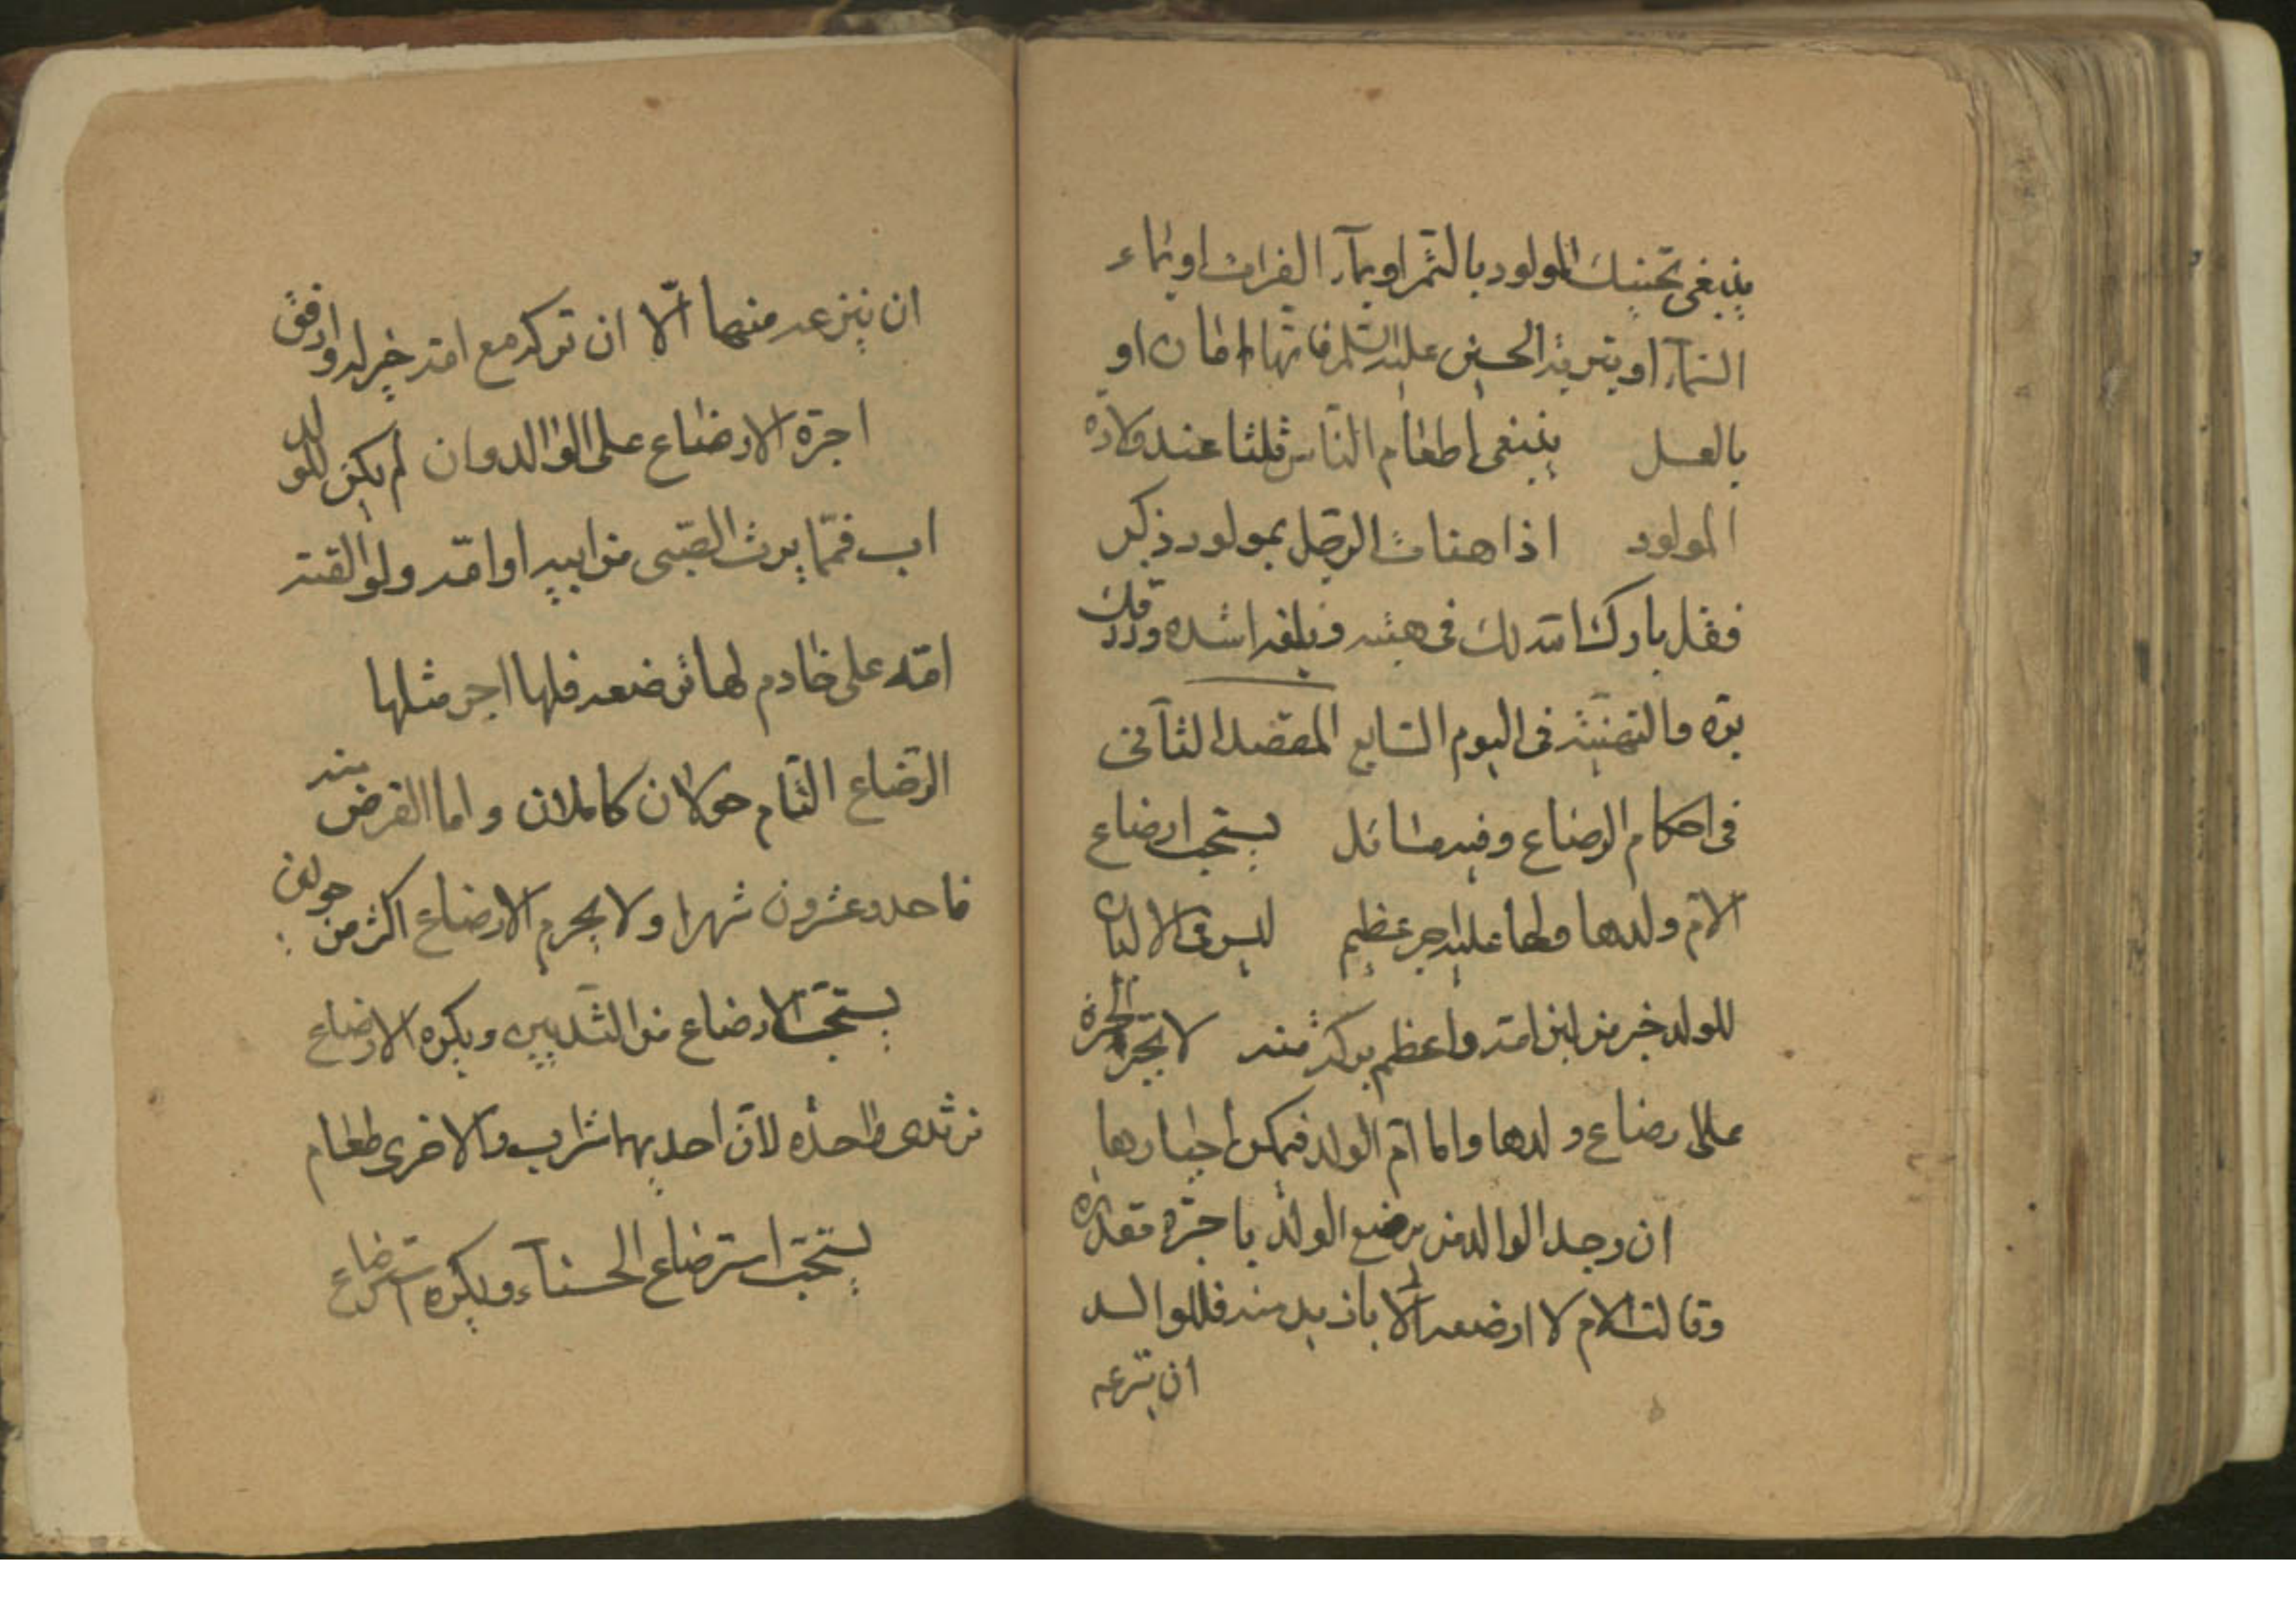 ينبغى تحنيك المولود بالتمر او بمآء الفرات او بماء
السمآء او بتربة الحسين عليه السلم فانها امان او
بالعسل ينبغى اطعام الناس ثلثا عند ولادة
المولود اذا هنات الرجل بمولود ذكر
فقل بارك الله لك فى هبته وبلغه اشده ورزقك
بره والتهنئة فى اليوم السابع المقصد الثآنى
فى احكام الرضاع وفيه مسائل يستحب ارضاع
الام ولدها ولها عليه اجر عظيم ليس فى الالبان
للولد خير من لبن امه واعظم بركة منه لا تجبر الحرة
على رضاع ولدها واما ام الولد فيمكن اجبارها
ان وجد الوالد من يرضع الولد باجرة مقدرة
وقالت الام لا ارضعه الا بازيد منه فللوالد
ان ينزعه
ان ينزعه منهما الّا ان تركه مع امه خير له وارفق
اجرة الارضاع على الوالد وان لم يكن للولد
اب فمّا يرث الصبى من ابيه او امّه ولو القته
امّه على خادم لها ترضعه فلها اجر مثلها
الرّضاع التّام حولان كاملان واما الفرض منه
فاحد وعشرون شهرا ولا يحرم الارضاع اكثر من حولين
يستحبّ الارضاع من الثّديين ويكره الارضاع
من ثدى واحدة لانّ احديهما شراب والاخرى طعام
يستحبّ استرضاع الحسنآء ويكره استرضاع